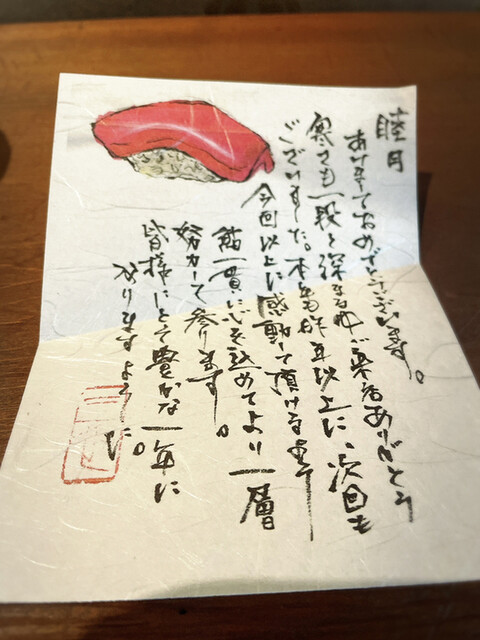 睦月
あけましておめでとうございます。
寒さも一段と深まる中ご来店ありがとう
ございました。本年も昨年以上に、次回も
今回以上に感動して頂けるます
鮨一貫に心を込めてより一層
努力して参ります。
皆様にとって豊かな一年に
なりますように。